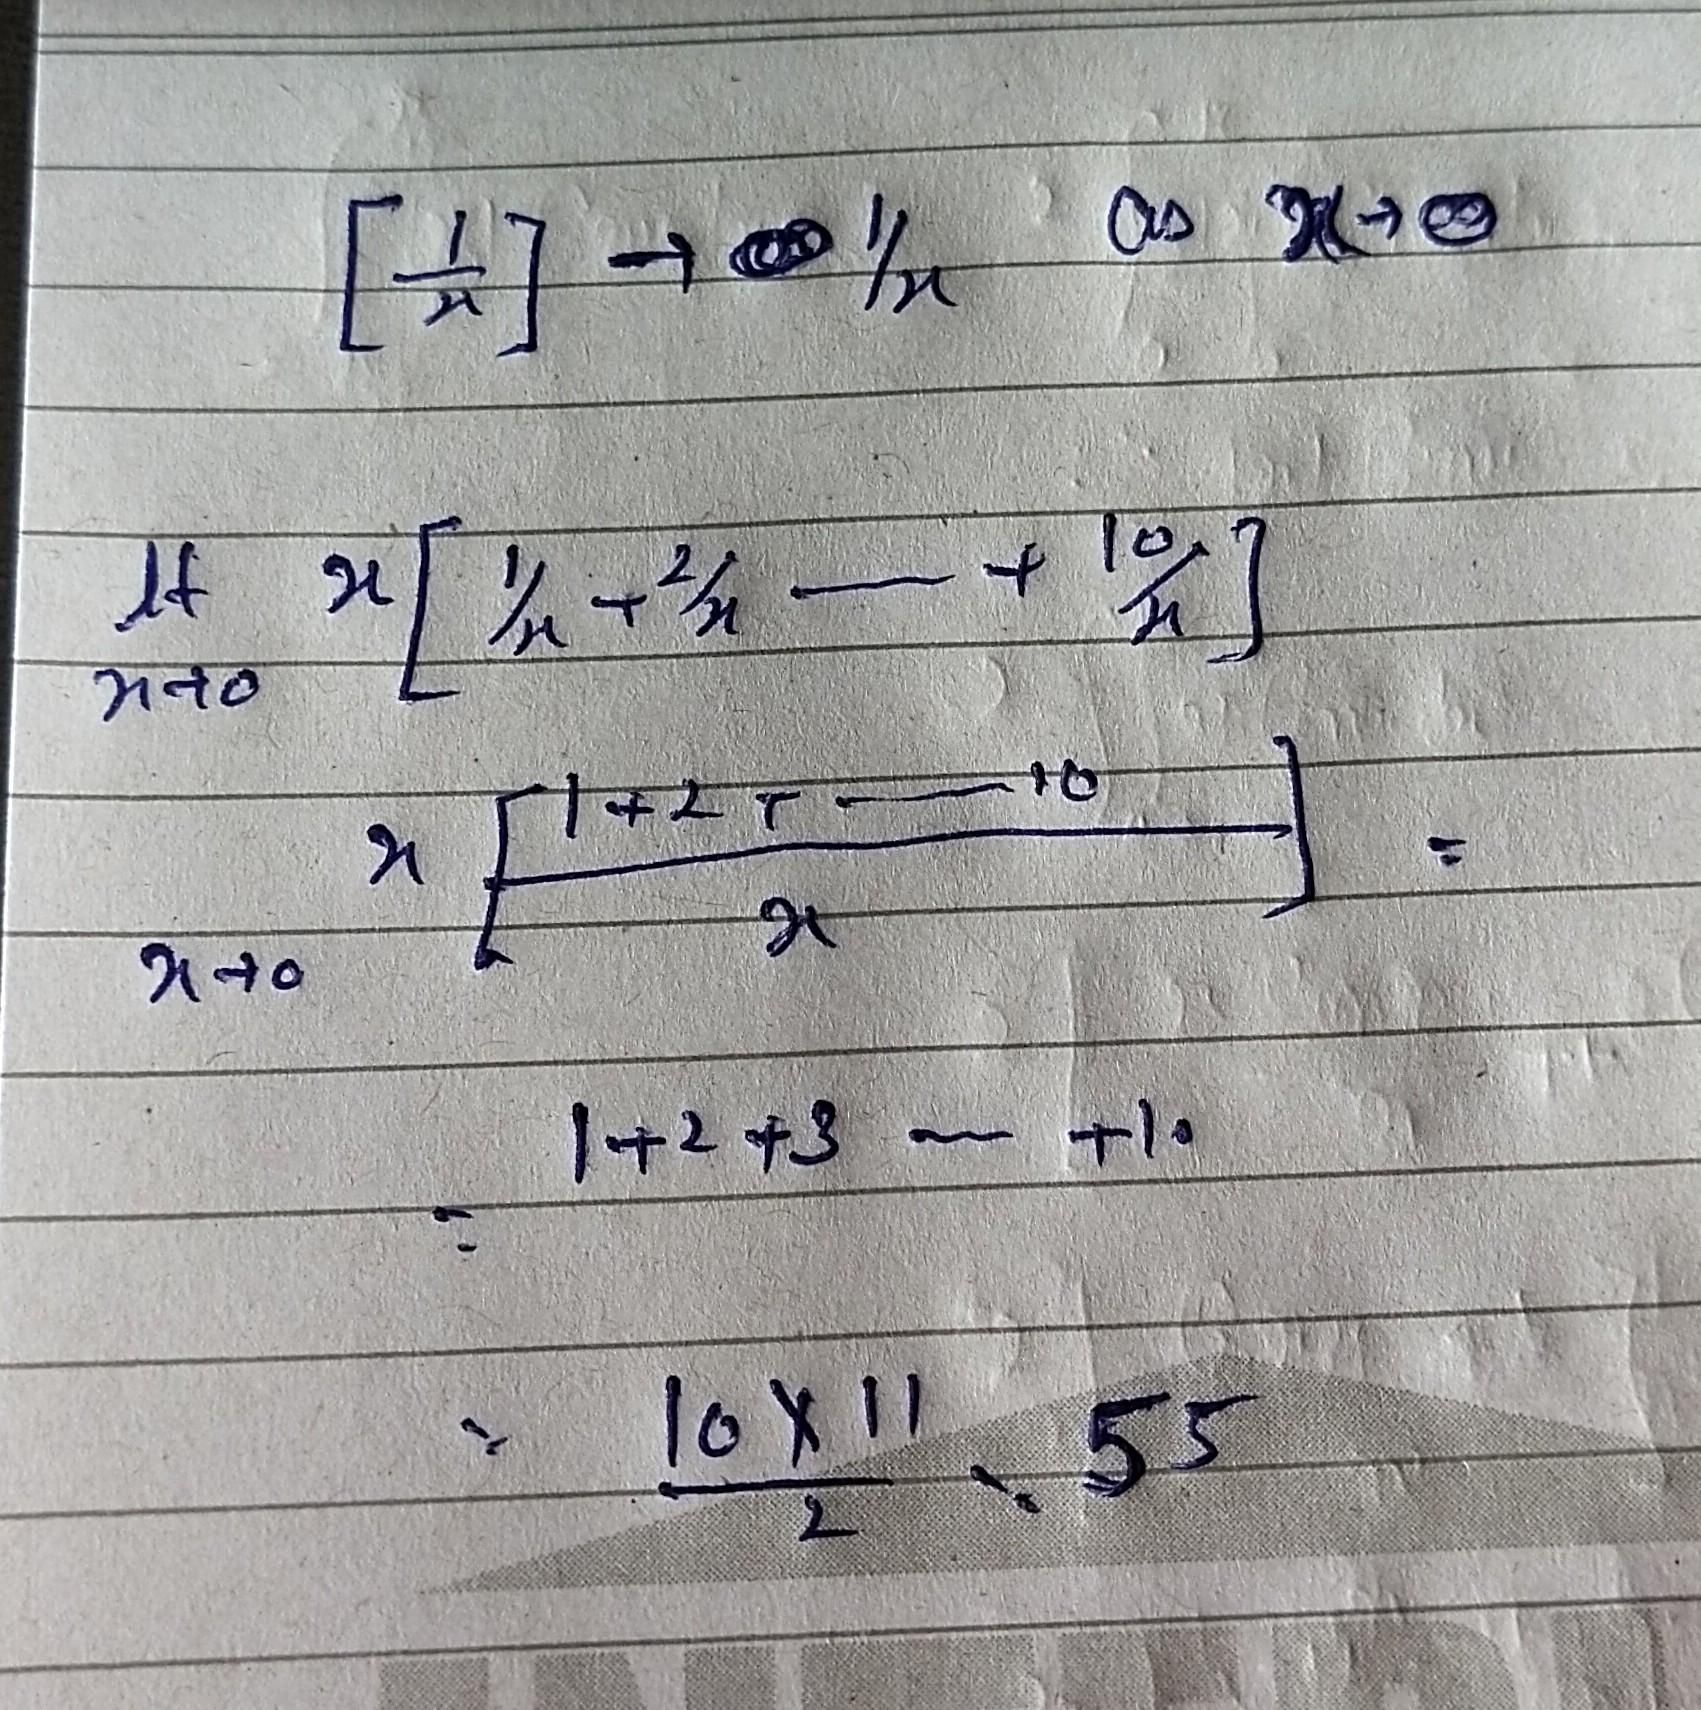 [1/x] → ∞ 1/x as x→∞
lt x[1/x + 2/x — + 10/x]
x→0
x [1+2+ — 10 / x] =
x→0
1+2+3 — +10
=
= 10 X 11 / 2 = 55